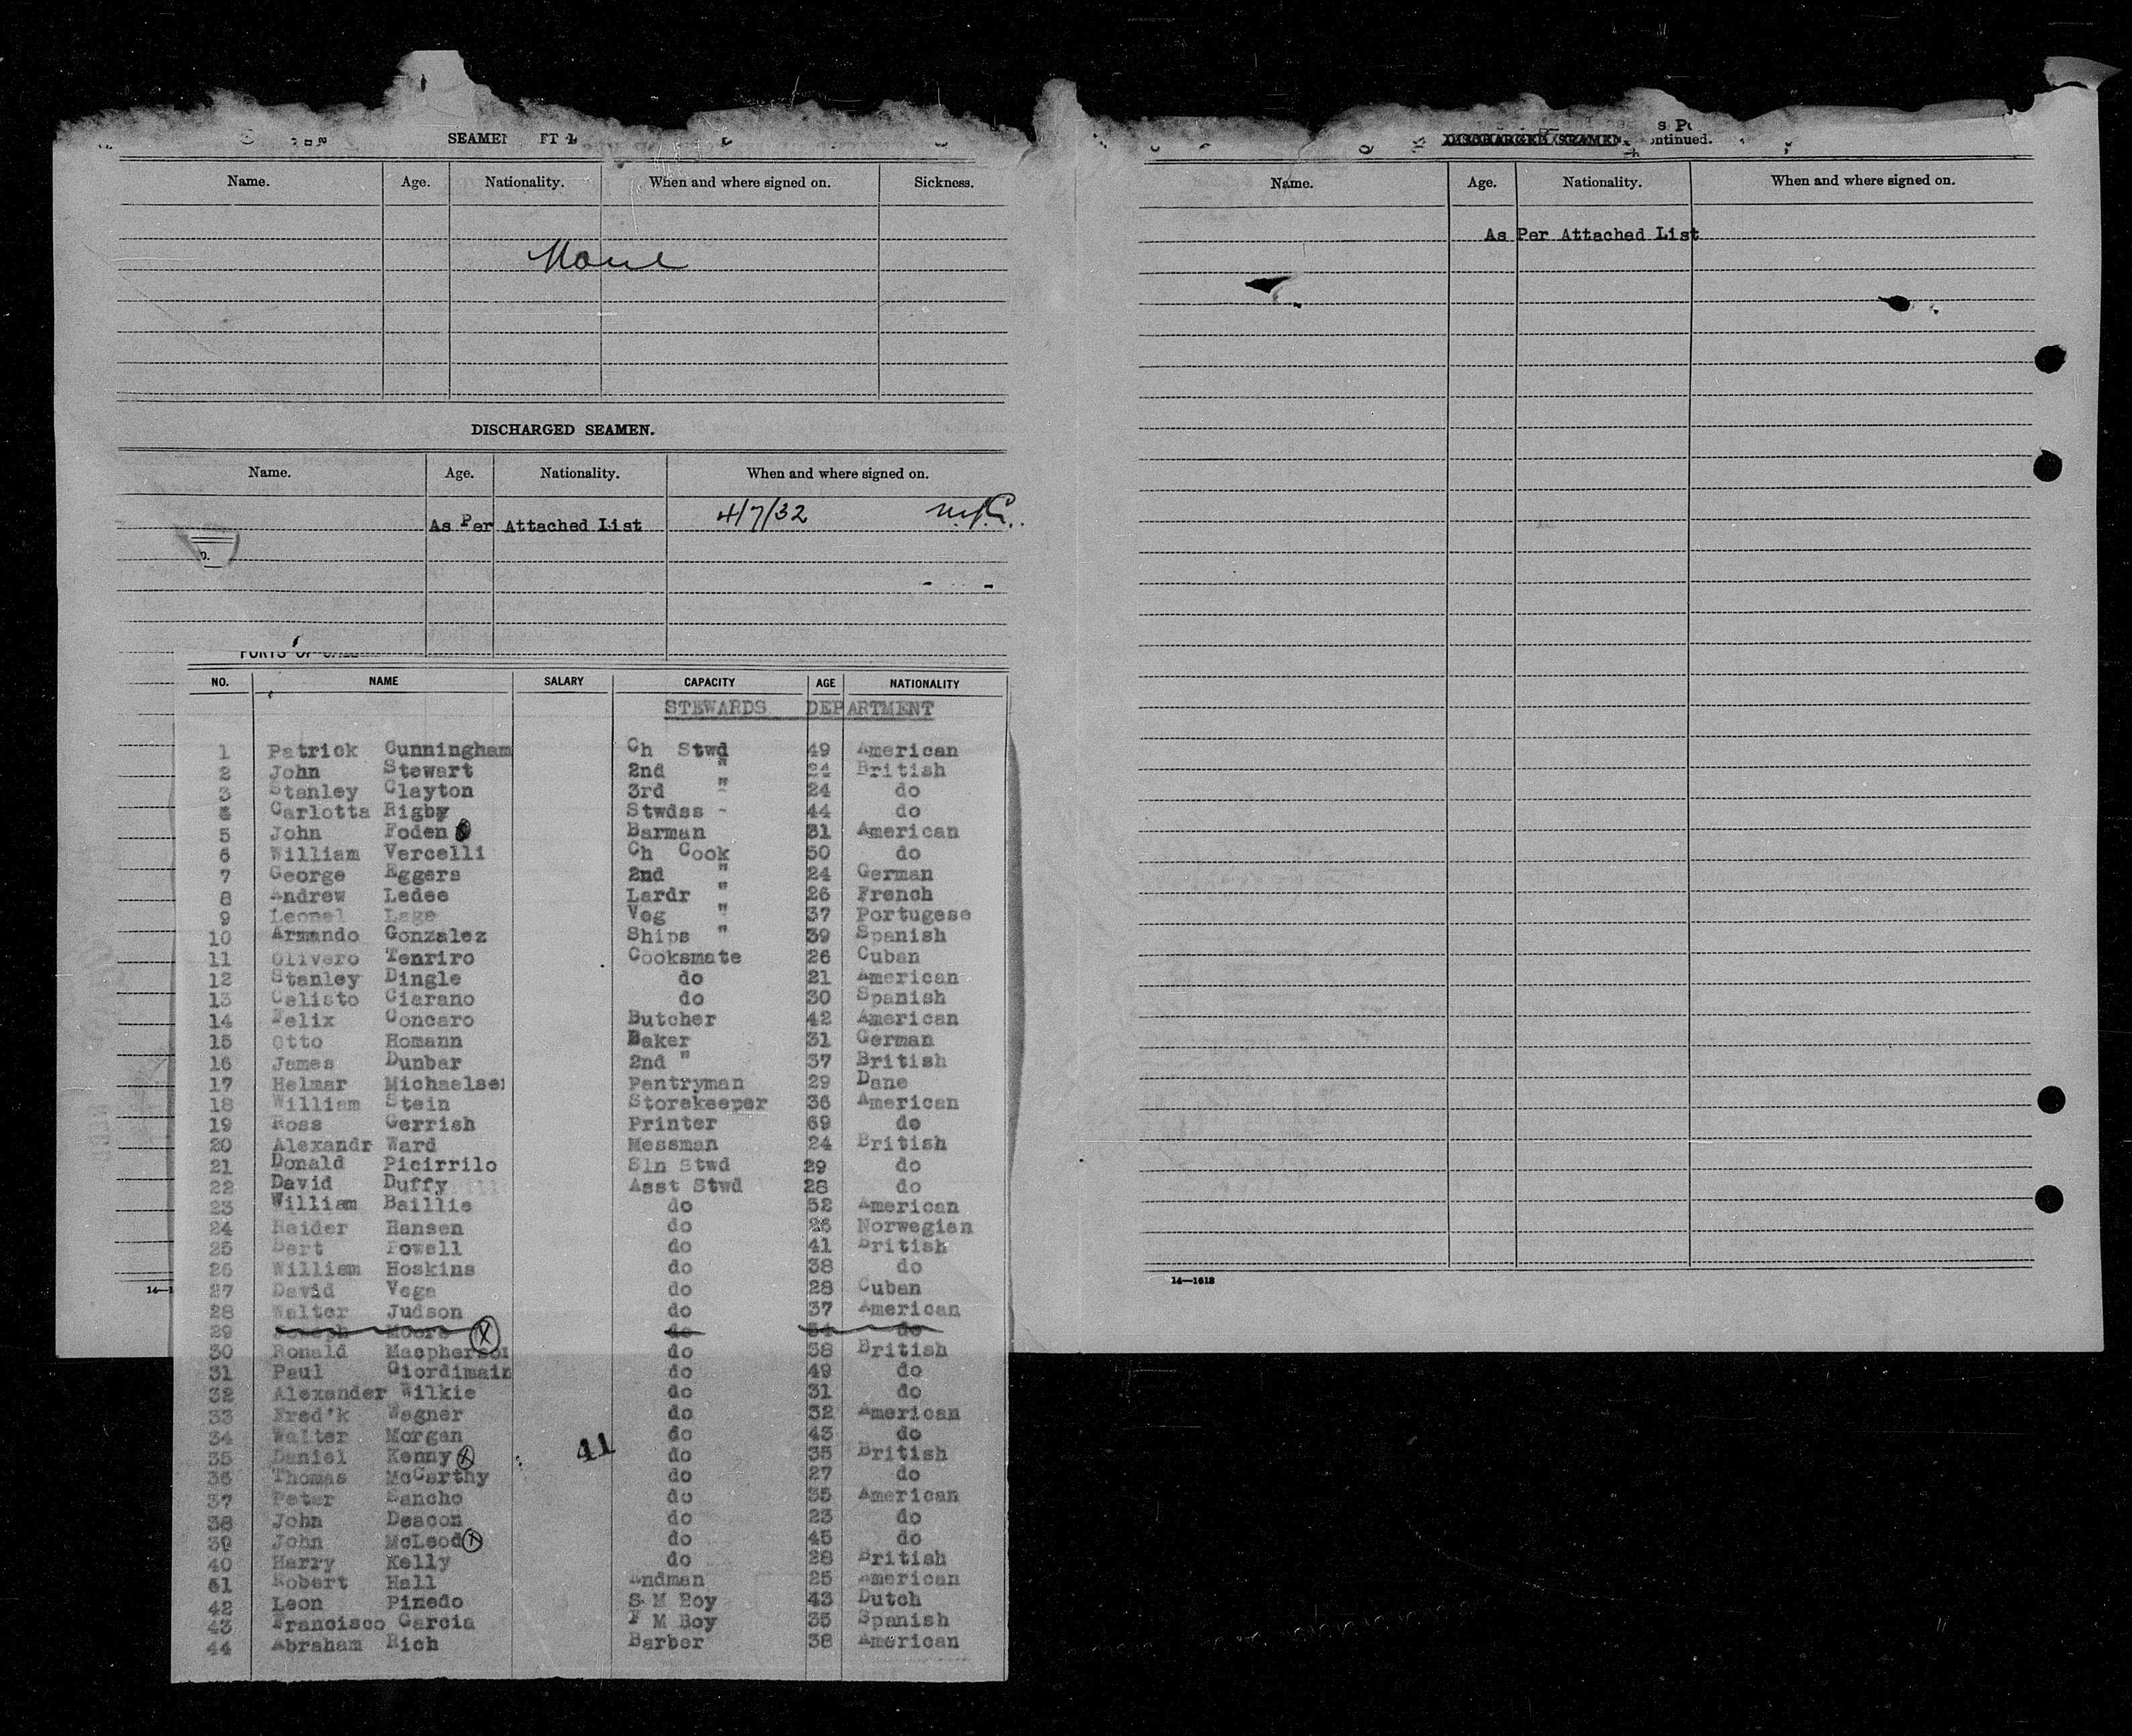 SEAMEN
Name. Age. Nationality. When and where signed on. Sickness.
None
DISCHARGED SEAMEN.
Name. Age. Nationality. When and where signed on.
As Per Attached List 4/7/32
NO. NAME SALARY CAPACITY AGE NATIONALITY
STEWARDS DEPARTMENT
1 Patrick Cunningham Ch Stwd 49 American
2 John Stewart 2nd " 24 British
3 Stanley Clayton 3rd " 24 do
4 Carlotta Rigby Stwdss - 44 do
5 John Foden Barman 31 American
6 William Vercelli Ch Cook 50 do
7 George Eggers 2nd " 24 German
8 Andrew Ledee Lardr " 26 French
9 Leonel Lage Veg " 37 Portugese
10 Armando Gonzalez Ships " 39 Spanish
11 Olivero Tenriro Cooksmate 26 Cuban
12 Stanley Dingle do 21 American
13 Celisto Ciarano do 30 Spanish
14 Felix Concaro Butcher 42 American
15 Otto Homann Baker 31 German
16 James Dunbar 2nd " 37 British
17 Helmar Michaelsen Pantryman 29 Dane
18 William Stein Storekeeper 36 American
19 Ross Gerrish Printer 69 do
20 Alexandr Ward Messman 24 British
21 Donald Picirrilo Sln Stwd 29 do
22 David Duffy Asst Stwd 28 do
23 William Baillie do 52 American
24 Heider Hansen do 26 Norwegian
25 Bert Powell do 41 British
26 William Hoskins do 38 do
27 David Vega do 28 Cuban
28 Walter Judson do 37 American
29 Joseph Moore X do 54 do
30 Ronald Macpherson do 38 British
31 Paul Giordimain do 49 do
32 Alexander Wilkie do 31 do
33 Fred'k Wagner do 32 American
34 Walter Morgan do 43 do
35 Daniel Kenny X 41 do 35 British
36 Thomas McCarthy do 27 do
37 Peter Sancho do 35 American
38 John Deacon do 23 do
39 John McLeod X do 45 do
40 Harry Kelly do 28 British
41 Robert Hall Lndman 25 American
42 Leon Pinedo S M Boy 43 Dutch
43 Francisco Garcia F M Boy 35 Spanish
44 Abraham Rich Barber 38 American
DISCHARGED SEAMEN ontinued.
Name. Age. Nationality. When and where signed on.
As Per Attached List
14—1618